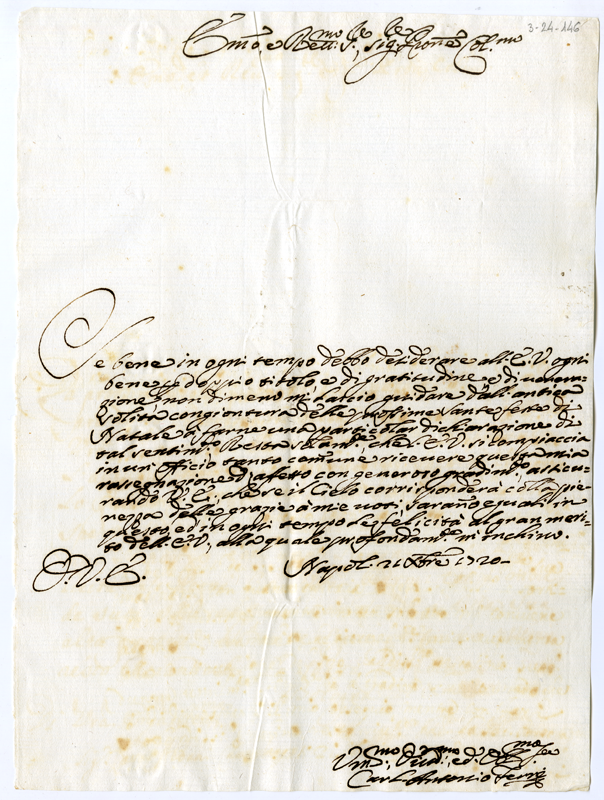 3-24-146
Emo, e Revmo Sre, Sigre, e Pne Colmo
Se bene in ogni tempo debbo desiderare all' E. V. ogni
bene per doppio titolo, e di gratitudine, e di venera-
zione, non di meno mi lascio guidare dall' antica
solita congiontura delle prossime sante feste di
Natale, a farne una particolar dichiarazione di
tal sentimto. Resta solamte, che l' E. V. si compiaccia
in un officio tanto comune ricevere questa mia
rassegnazione d' affetto con generoso gradimto, assicu-
rando V. E., che se il Cielo corrisponderà colla pie-
nezza delle grazie a' miei voti, saranno eguali in
questo, ed in ogni tempo le felicità al gran meri-
to dell' E. V., alla quale profondamte m' inchino.
D. V. E.
Napoli 21 Xbre 1720
Vmmo, Divmo, ed
Carl' Antonio